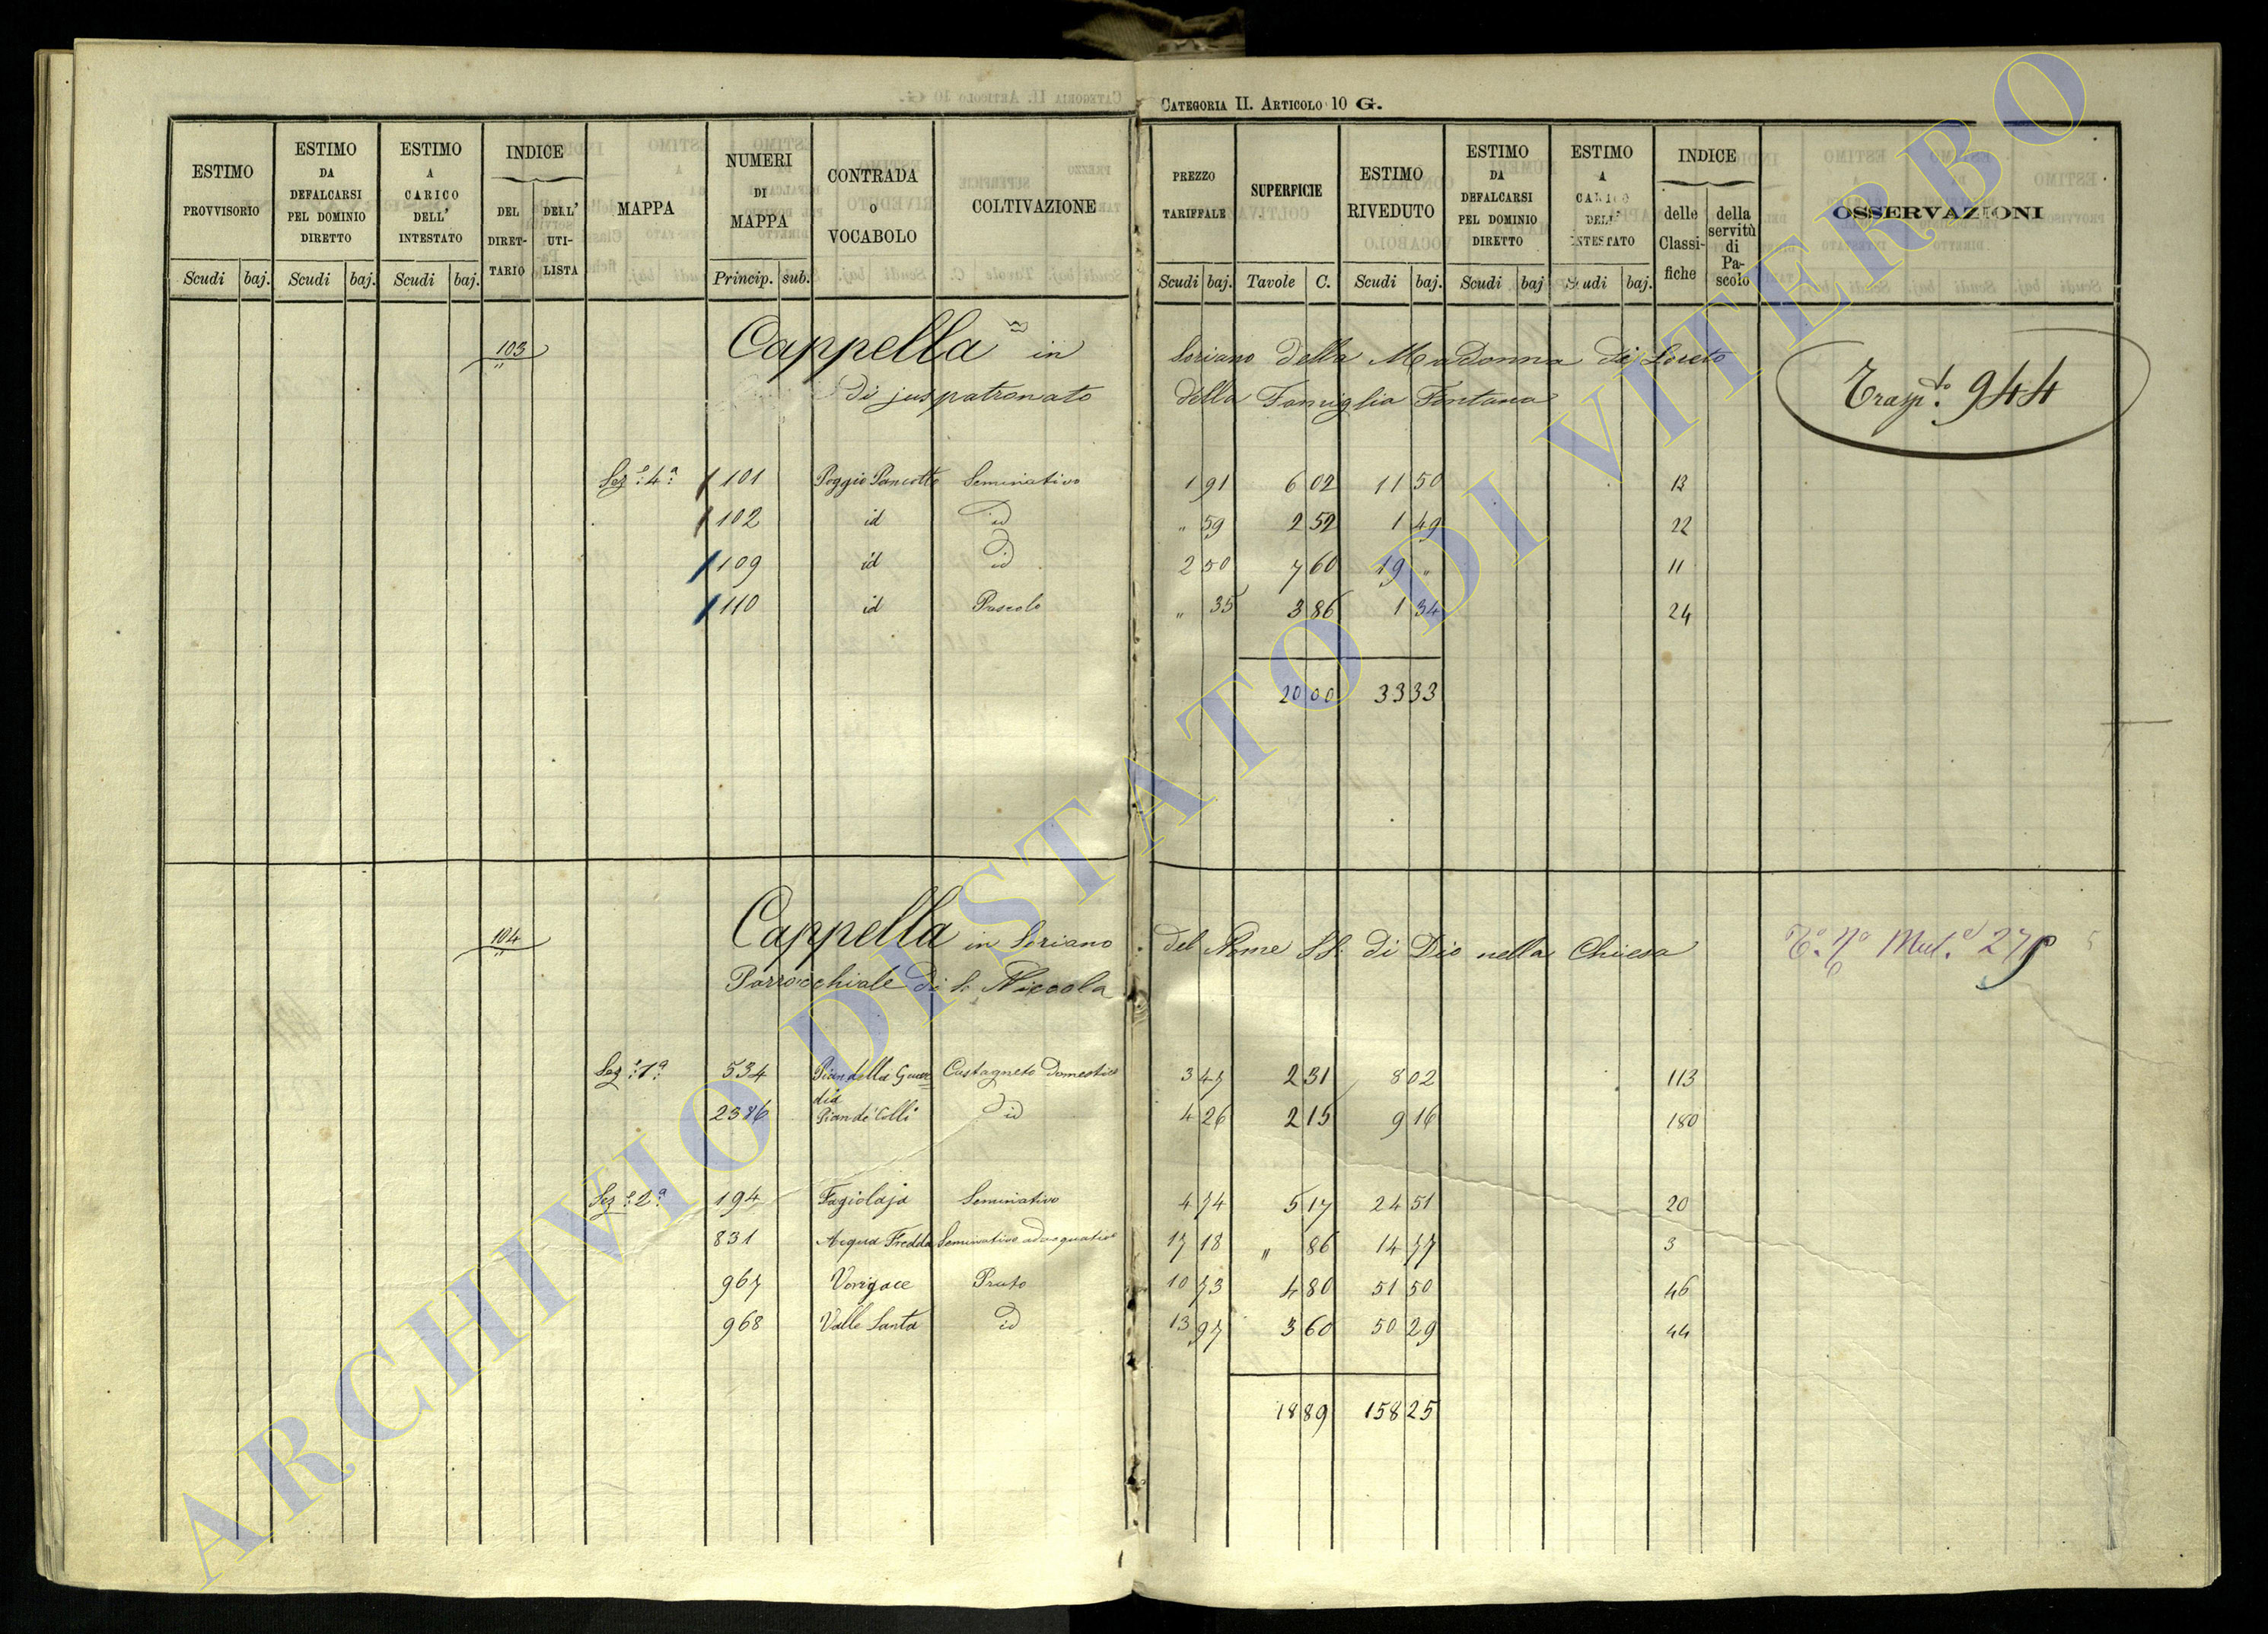 CATEGORIA II. ARTICOLO 10 G.
ESTIMO PROVVISORIO Scudi baj.
ESTIMO DA DEFALCARSI PEL DOMINIO DIRETTO Scudi baj.
ESTIMO A CARICO DELL' INTESTATO Scudi baj.
INDICE DEL DIRET-TARIO DELL' UTI-LISTA
MAPPA
NUMERI DI MAPPA Princip. sub.
CONTRADA O VOCABOLO
COLTIVAZIONE
PREZZO TARIFFALE Scudi baj.
SUPERFICIE Tavole C.
ESTIMO RIVEDUTO Scudi baj.
ESTIMO DA DEFALCARSI PEL DOMINIO DIRETTO Scudi baj
ESTIMO A CARICO DELL' INTESTATO Scudi baj.
INDICE delle Classi-fiche della servitù di Pa-scolo
OSSERVAZIONI
103 Cappella in Soriano della Madonna di Loreto
di juspatronato della Famiglia Fontana
Trasp.to 944
Sez.e 4a 101 Poggio Pancotto Seminativo 1 91 6 02 11 50 13
102 id id " 59 2 52 1 49 22
109 id id 2 50 7 60 19 " 11
110 id Pascolo " 35 3 86 1 34 24
20 00 33 33
104 Cappella in Soriano del Nome SS. di Dio nella Chiesa
Parrocchiale di S. Niccola
Sez.e 1a 534 Pian della Guar= Castagneto domestico 3 47 2 31 8 02 113
dia
2386 Pian de' Colli id 4 26 2 15 9 16 180
Sez.e 2a 194 Fagiolaja Seminativo 4 74 5 17 24 51 20
831 Acqua Fredda Seminativo adacquativo 17 18 " 86 14 77 3
967 Vorigace Prato 10 73 4 80 51 50 46
968 Valle Santa id 13 97 3 60 50 29 44
18 89 158 25
ARCHIVIO DI STATO DI VITERBO